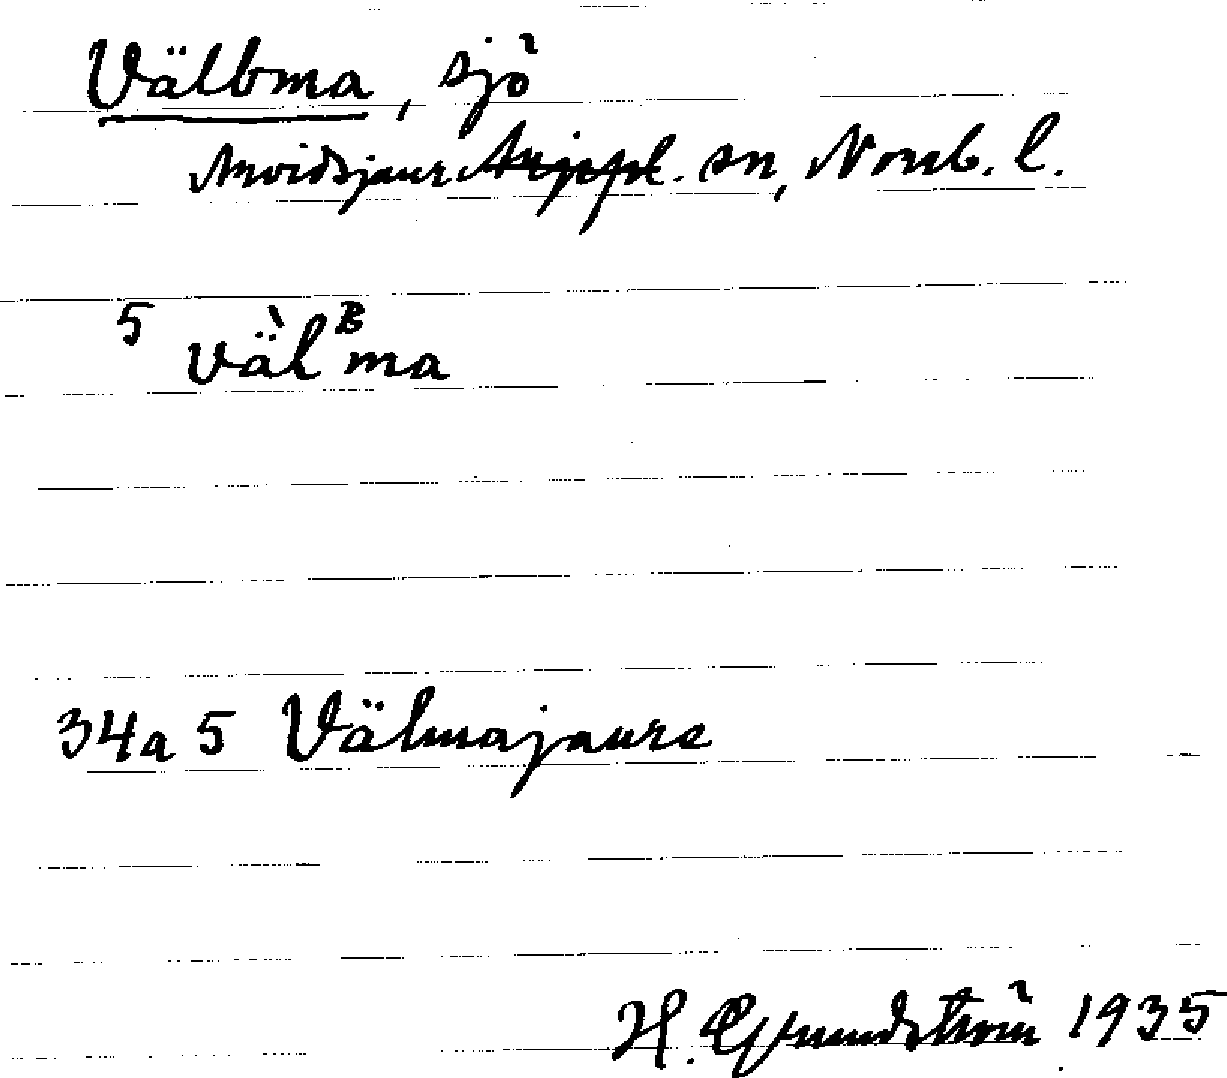 Välbma, sjö
Arvidsjaur Arjepl. sn, Norrb. l.
5 väl ᴮma
34a 5 Välmajaure
H. Grundström 1935